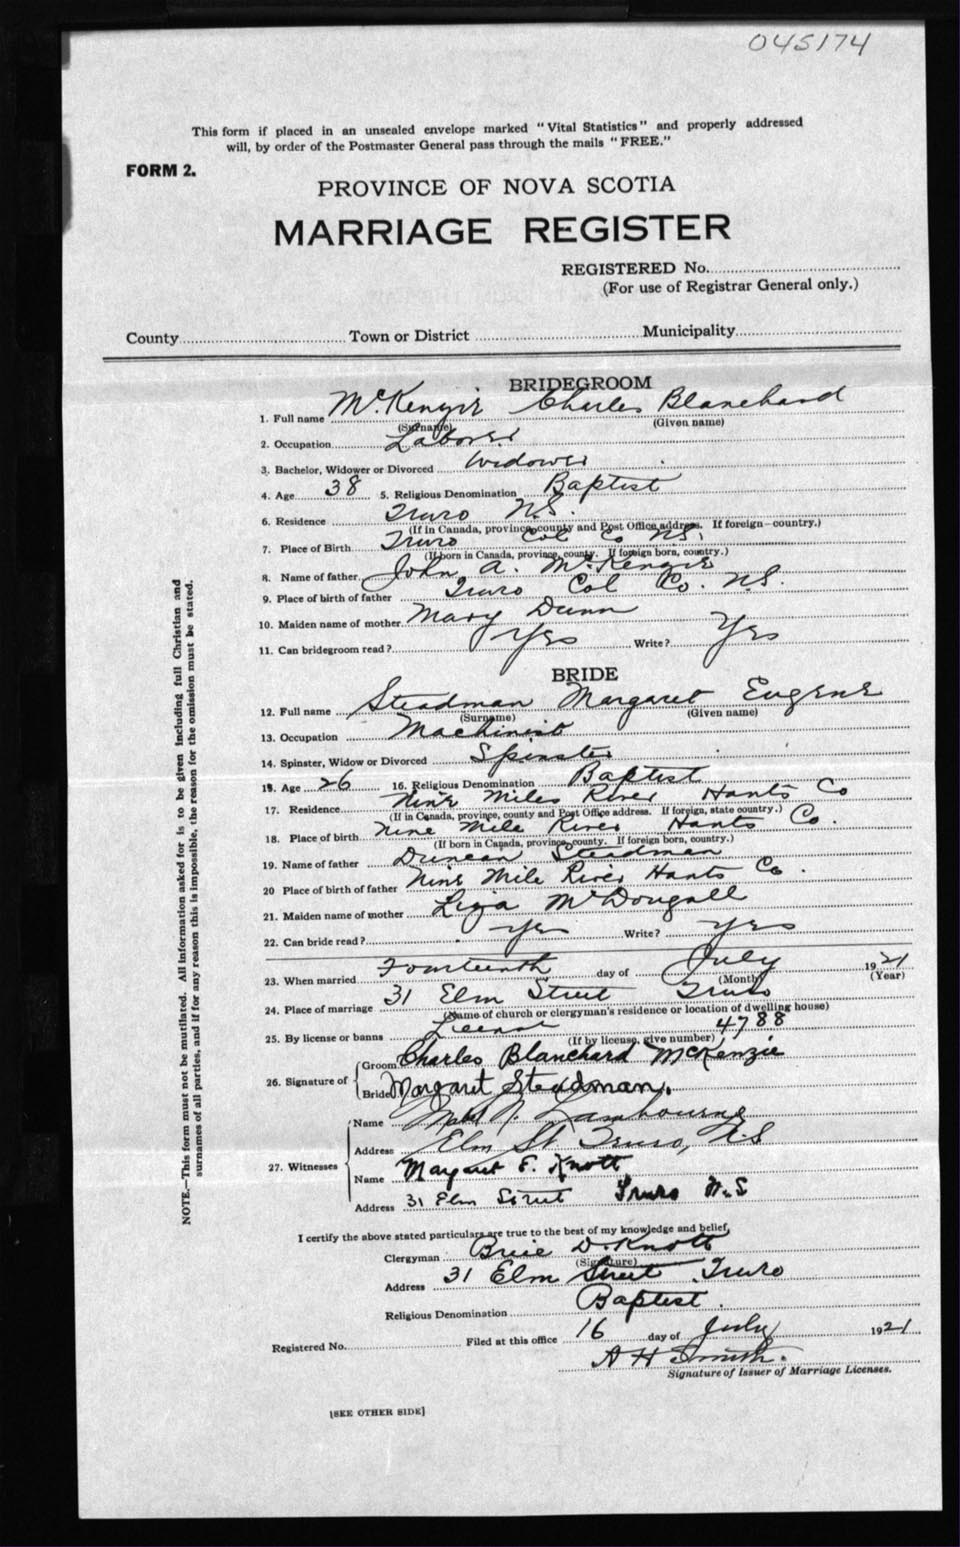 045174
This form if placed in an unsealed envelope marked "Vital Statistics" and properly addressed
will, by order of the Postmaster General pass through the mails "FREE."
FORM 2.
PROVINCE OF NOVA SCOTIA
MARRIAGE REGISTER
REGISTERED No.
(For use of Registrar General only.)
County Town or District Municipality
BRIDEGROOM
1. Full name McKenzie Charles Blanchard
(Surname) (Given name)
2. Occupation Laborer
3. Bachelor, Widower or Divorced Widower
4. Age 38 5. Religious Denomination Baptist
6. Residence Truro N.S.
(If in Canada, province, county and Post Office address. If foreign—country.)
7. Place of Birth Truro Col Co N.S.
(If born in Canada, province, county. If foreign born, country.)
8. Name of father John A. McKenzie
9. Place of birth of father Truro Col Co. N.S.
10. Maiden name of mother Mary Dunn
11. Can bridegroom read? Yes Write? Yes
BRIDE
12. Full name Steadman Margaret Eugene
(Surname) (Given name)
13. Occupation Machinist
14. Spinster, Widow or Divorced Spinster
15. Age 26 16. Religious Denomination Baptist
17. Residence Nine Miles River Hants Co
(If in Canada, province, county and Post Office address. If foreign, state country.)
18. Place of birth Nine Mile River Hants Co.
(If born in Canada, province, county. If foreign born, country.)
19. Name of father Duncan Steadman
20 Place of birth of father Nine Mile River Hants Co.
21. Maiden name of mother Liza McDougall
22. Can bride read? Yes Write? Yes
23. When married Fourteenth day of July 1921
(Month) (Year)
24. Place of marriage 31 Elm Street Truro
(Name of church or clergyman's residence or location of dwelling house)
25. By license or banns License 4788
(If by license, give number)
26. Signature of
Groom Charles Blanchard McKenzie
Bride Margaret Steadman.
27. Witnesses
Name Lambourne
Address Elm St. Truro, N.S
Name Margaret E. Knott
Address 31 Elm Street Truro N.S
I certify the above stated particulars are true to the best of my knowledge and belief,
Clergyman Brice D. Knott
(Signature)
Address 31 Elm Street Truro
Religious Denomination Baptist.
Registered No. Filed at this office 16 day of July 1921
A H Smith.
Signature of Issuer of Marriage Licenses.
[SEE OTHER SIDE]
NOTE.—This form must not be mutilated. All information asked for is to be given including full Christian and
surnames of all parties, and if for any reason this is impossible, the reason for the omission must be stated.